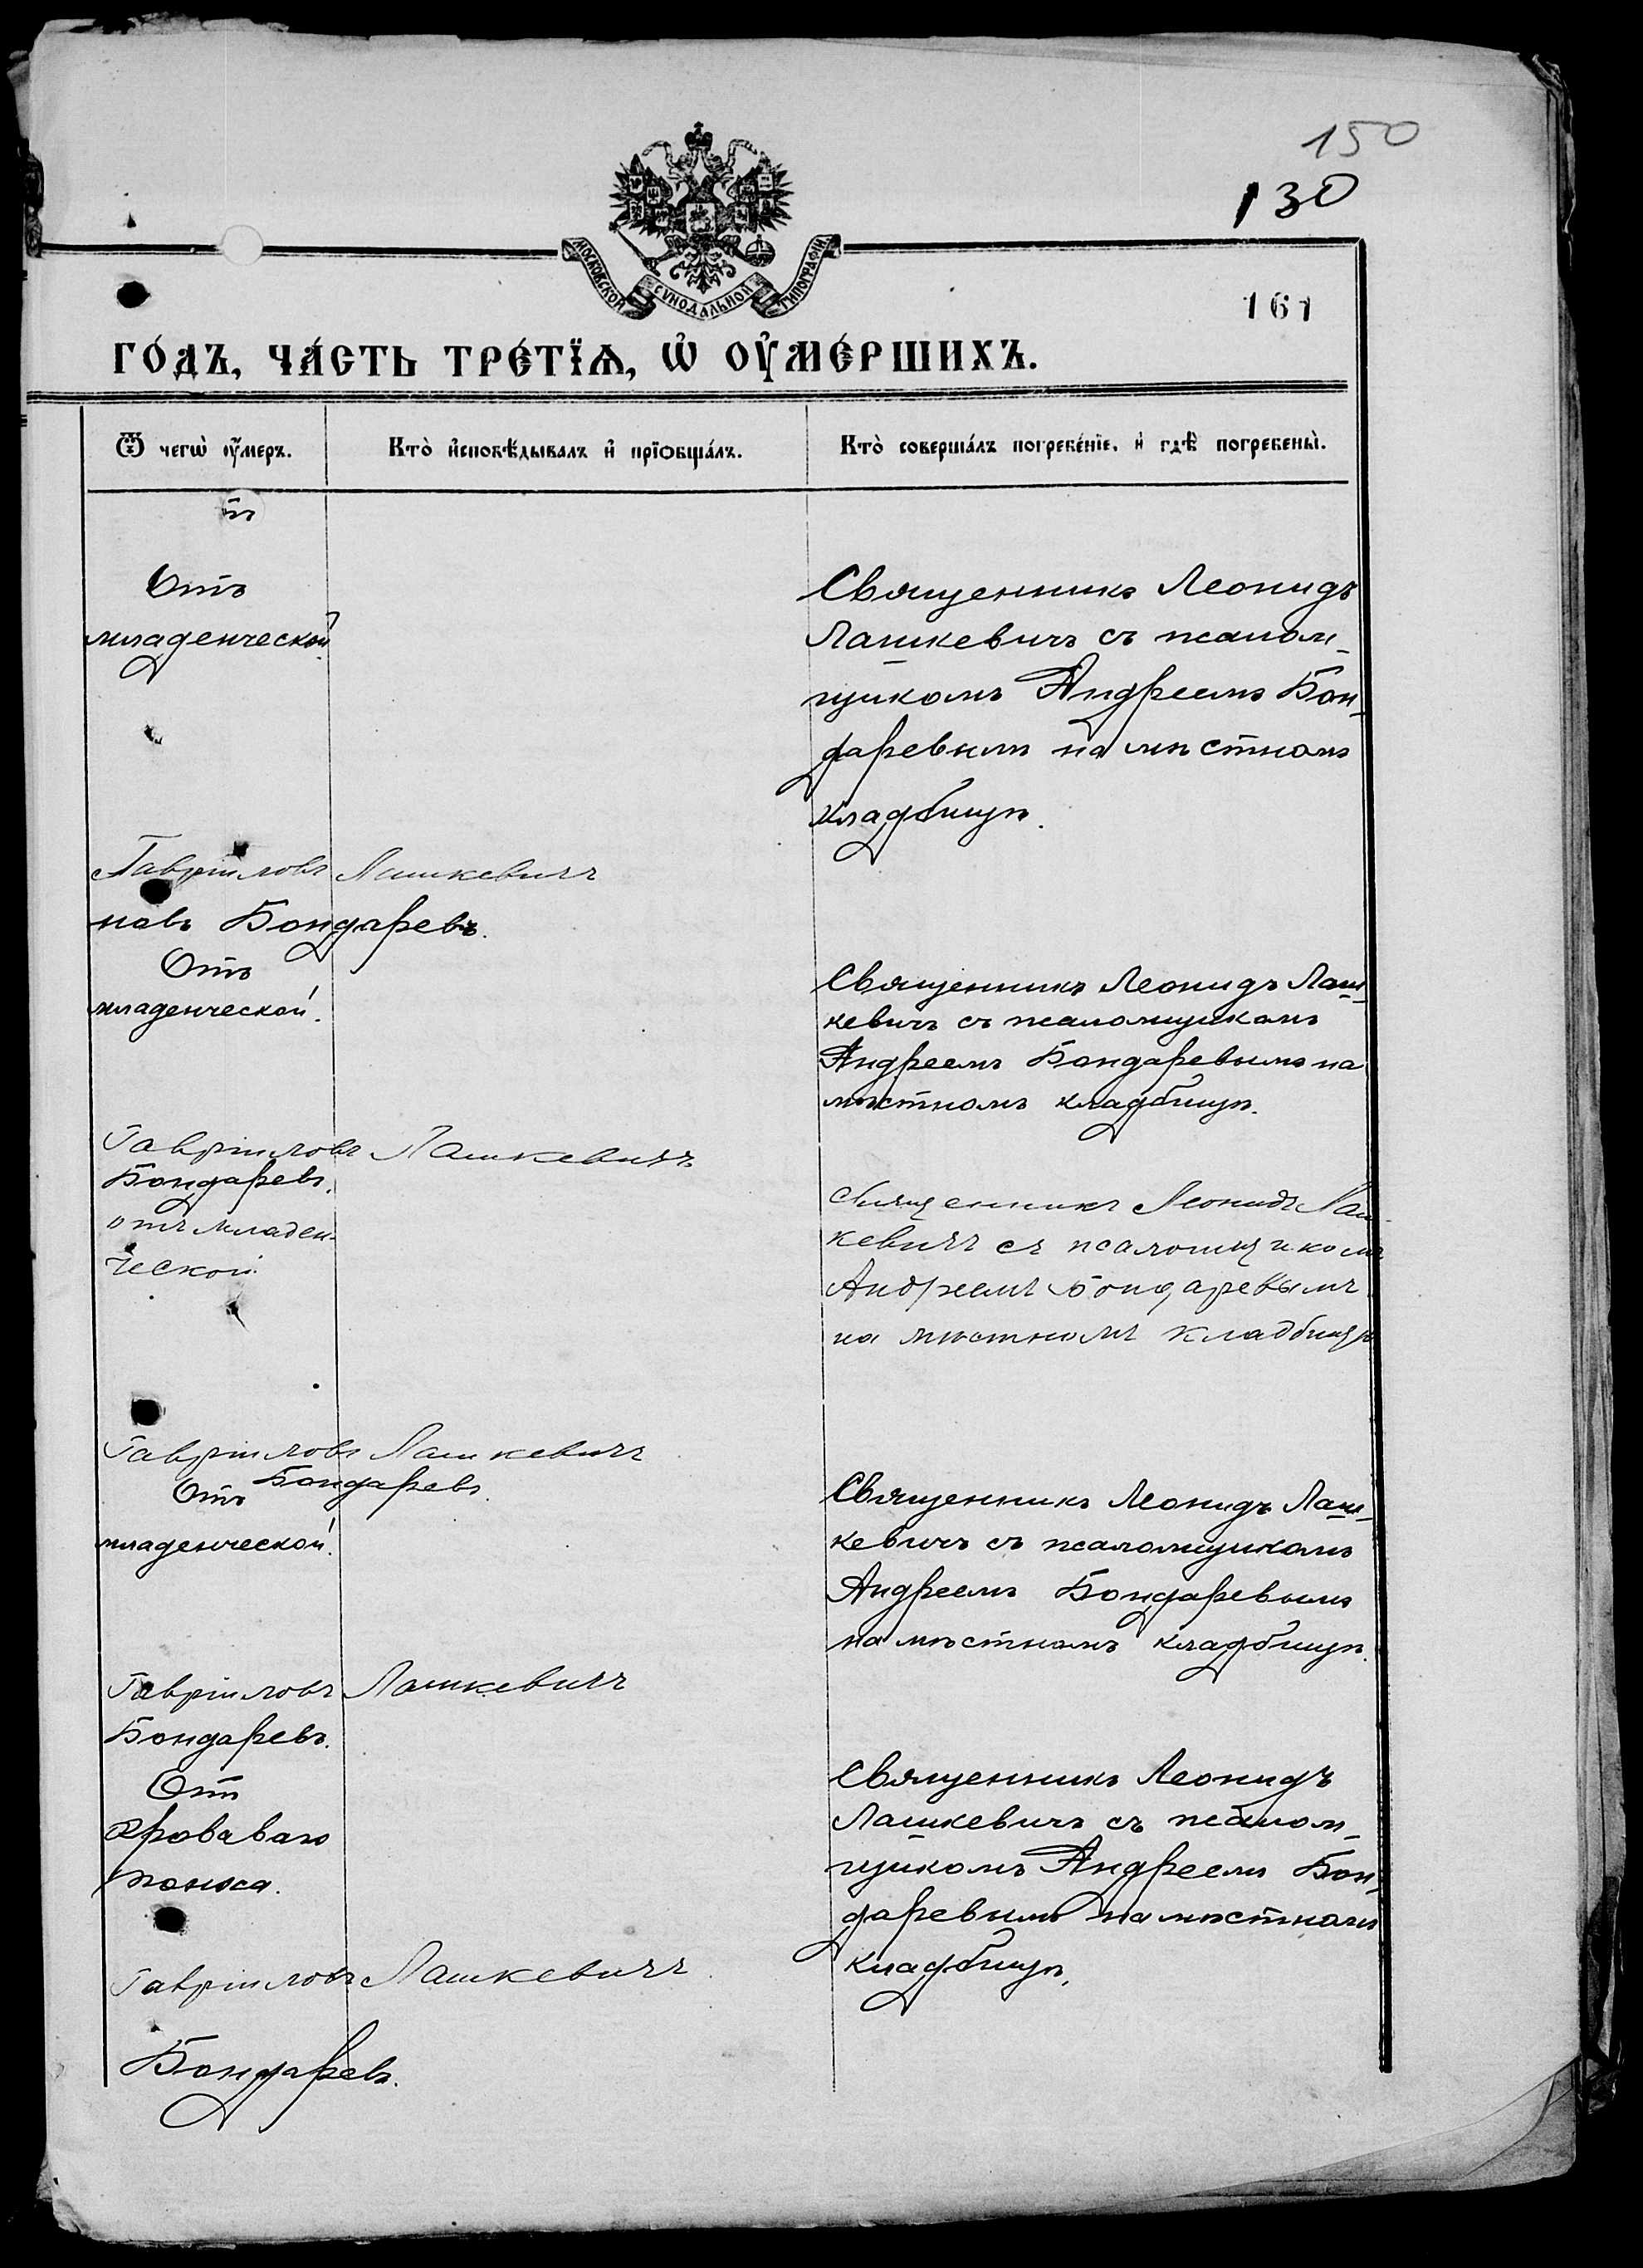 150
130
МОСКОВСКОЙ СѴНОДАЛЬНОЙ ТИПОГРАФІИ
161
ГО́ДЪ, ЧА́СТЬ ТРЕ́ТЇѦ, Ѡ҆ ОУ҆МЕ́РШИХЪ.
Ѿ чегѡ̀ ᲂу҆́меръ.
Кто̀ и҆сповѣ́дывалъ и҆ прїѻбща́лъ.
Кто̀ соверша́лъ погребе́нїе, и҆ гдѣ̀ погребены̀.
Отъ
младенческой
Священникъ Леонидъ
Лашкевичъ съ псалом-
щикомъ Андреемъ Бон-
даревымъ на мѣстномъ
кладбищѣ.
Гавриловъ Лашкевичъ
Бондаревъ.
Отъ
младенческой.
Священникъ Леонидъ Лаш-
кевичъ съ псаломщикомъ
Андреемъ Бондаревымъ на
мѣстномъ кладбищѣ.
Гавриловъ Лашкевичъ
Бондаревъ.
отъ младен-
ческой
священникъ Леонидъ Лаш
кевичъ съ псаломщикомъ
Андреемъ Бондаревымъ
на мѣстномъ кладбищѣ
Гавриловъ Лашкевичъ
Бондаревъ.
Отъ
младенческой.
Священникъ Леонидъ Лаш-
кевичъ съ псаломщикомъ
Андреемъ Бондаревымъ
на мѣстномъ кладбищѣ.
Гавриловъ Лашкевичъ
Бондаревъ.
От
кроваваго
поноса.
Священникъ Леонидъ
Лашкевичъ съ псалом-
щикомъ Андреемъ Бон-
даревымъ на мѣстномъ
кладбищѣ.
Гавриловъ Лашкевичъ
Бондаревъ.